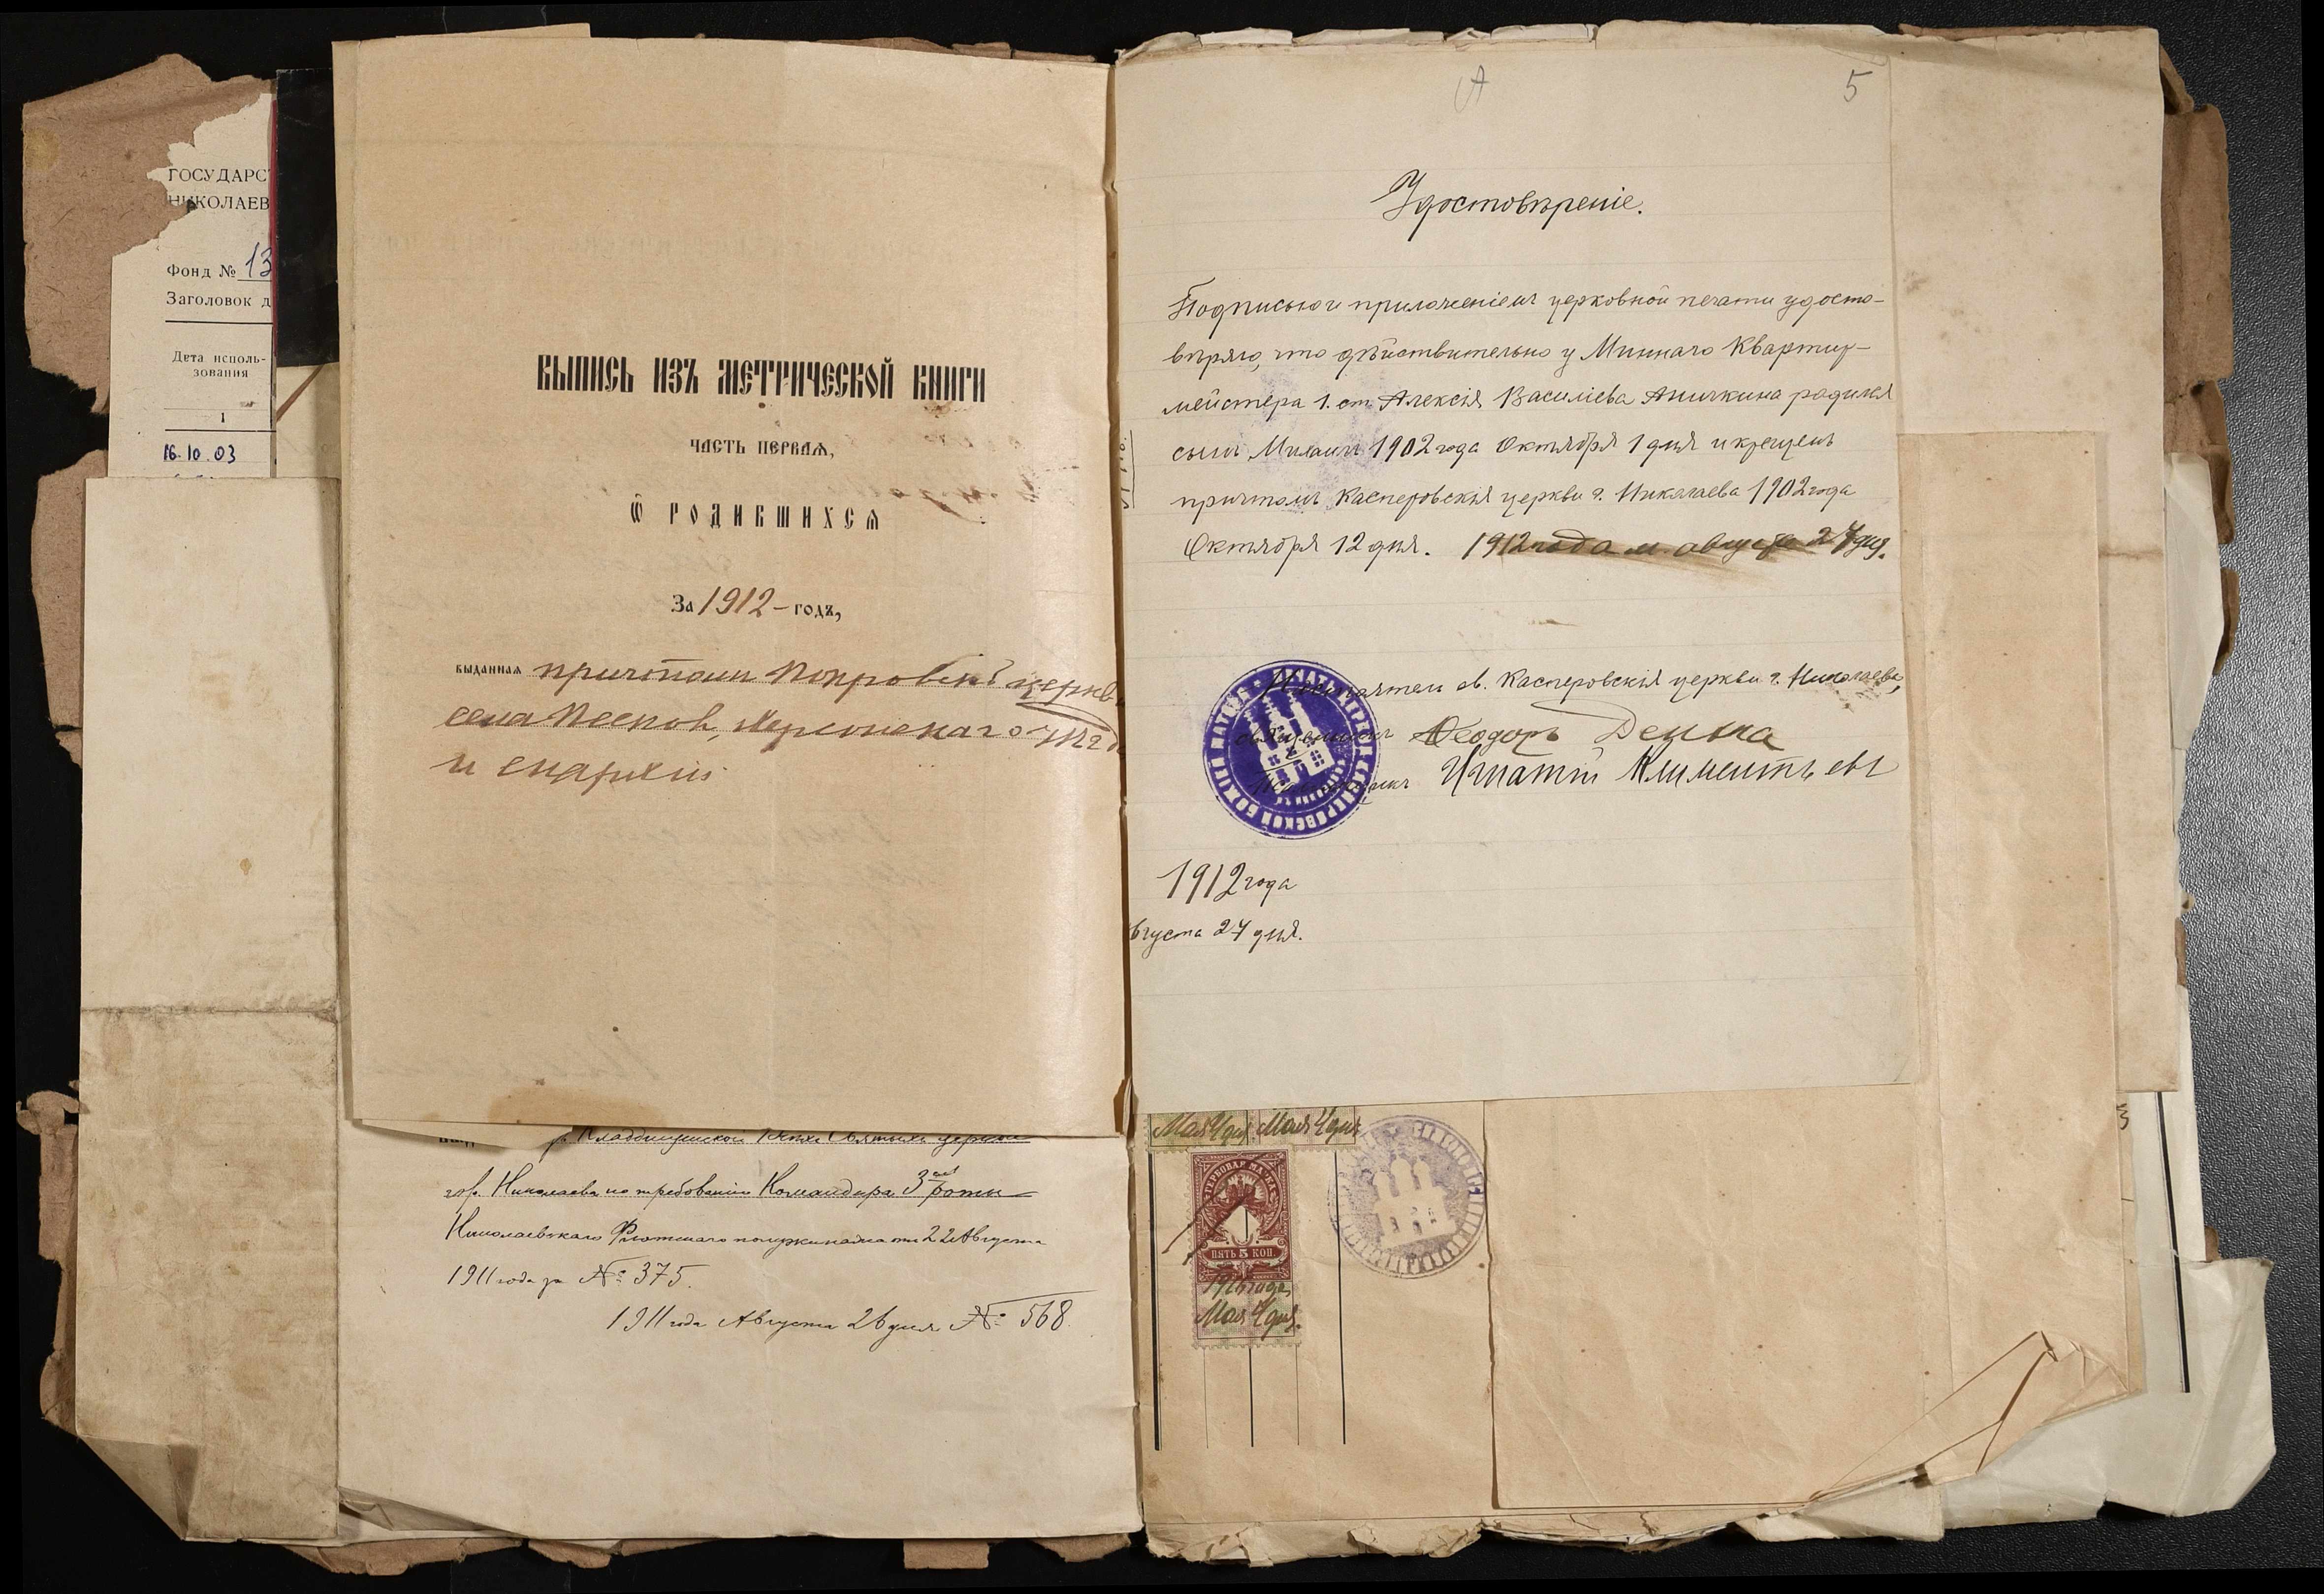 ГОСУДАРСТ
НИКОЛАЕВ
Фонд № 13
Заголовок д
Дата исполь-
зования
1
16.10.03
ВЫПИСЬ ИЗЪ МЕТРИЧЕСКОЙ КНИГИ
ЧАСТЬ ПЕРВАЯ,
Ѿ РОДИВШИХСЯ
За 1912 – годъ,
выданная причтомъ Покровской церкв
села Песковъ, Херсонскаго уѣзд
и епархіи
Кладбищенской Всѣхъ Святыхъ церкви
гор. Николаева по требованію Командира 3ей роты
Николаевскаго Флотскаго полуэкипажа отъ 22 Августа
1911 года за № 375.
1911 года Августа 26 дня № 568.
5
Удостовѣреніе.
Подписью и приложеніемъ церковной печати удосто-
вѣряю, что дѣйствительно у Миннаго Квартир-
мейстера 1. ст. Алексія Василіева Аничкина родился
сынъ Михаилъ 1902 года Октября 1 дня и крещенъ
причтомъ Касперовскія церкви г. Николаева 1902 года
Октября 12 дня. 1912 года м. августа 27 дня.
Настоятель св. Касперовскія церкви г. Николаева,
священникъ Ѳеодоръ Деика
Псаломщикъ Игнатій Климентьевъ
1912 года
вгуста 27 дня.
Мая 4 дня. Мая 4 дня
ГЕРБОВАЯ МАРКА
ПЯТЬ 5 КОП.
года
Мая 4 дня.